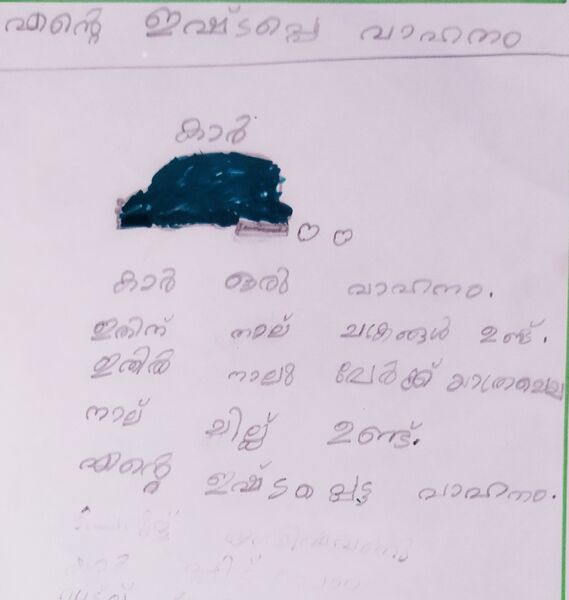 എന്റെ ഇഷ്ടപ്പെ വാഹനം
കാർ
കാർ ഒരു വാഹനം.
ഇതിന് നാല് ചക്രങ്ങൾ ഉണ്ട്.
ഇതിൽ നാലു പേർക്ക് യാത്രചെയ
നാല് ചില്ല് ഉണ്ട്.
എന്റെ ഇഷ്ടപ്പെട്ട വാഹനം.